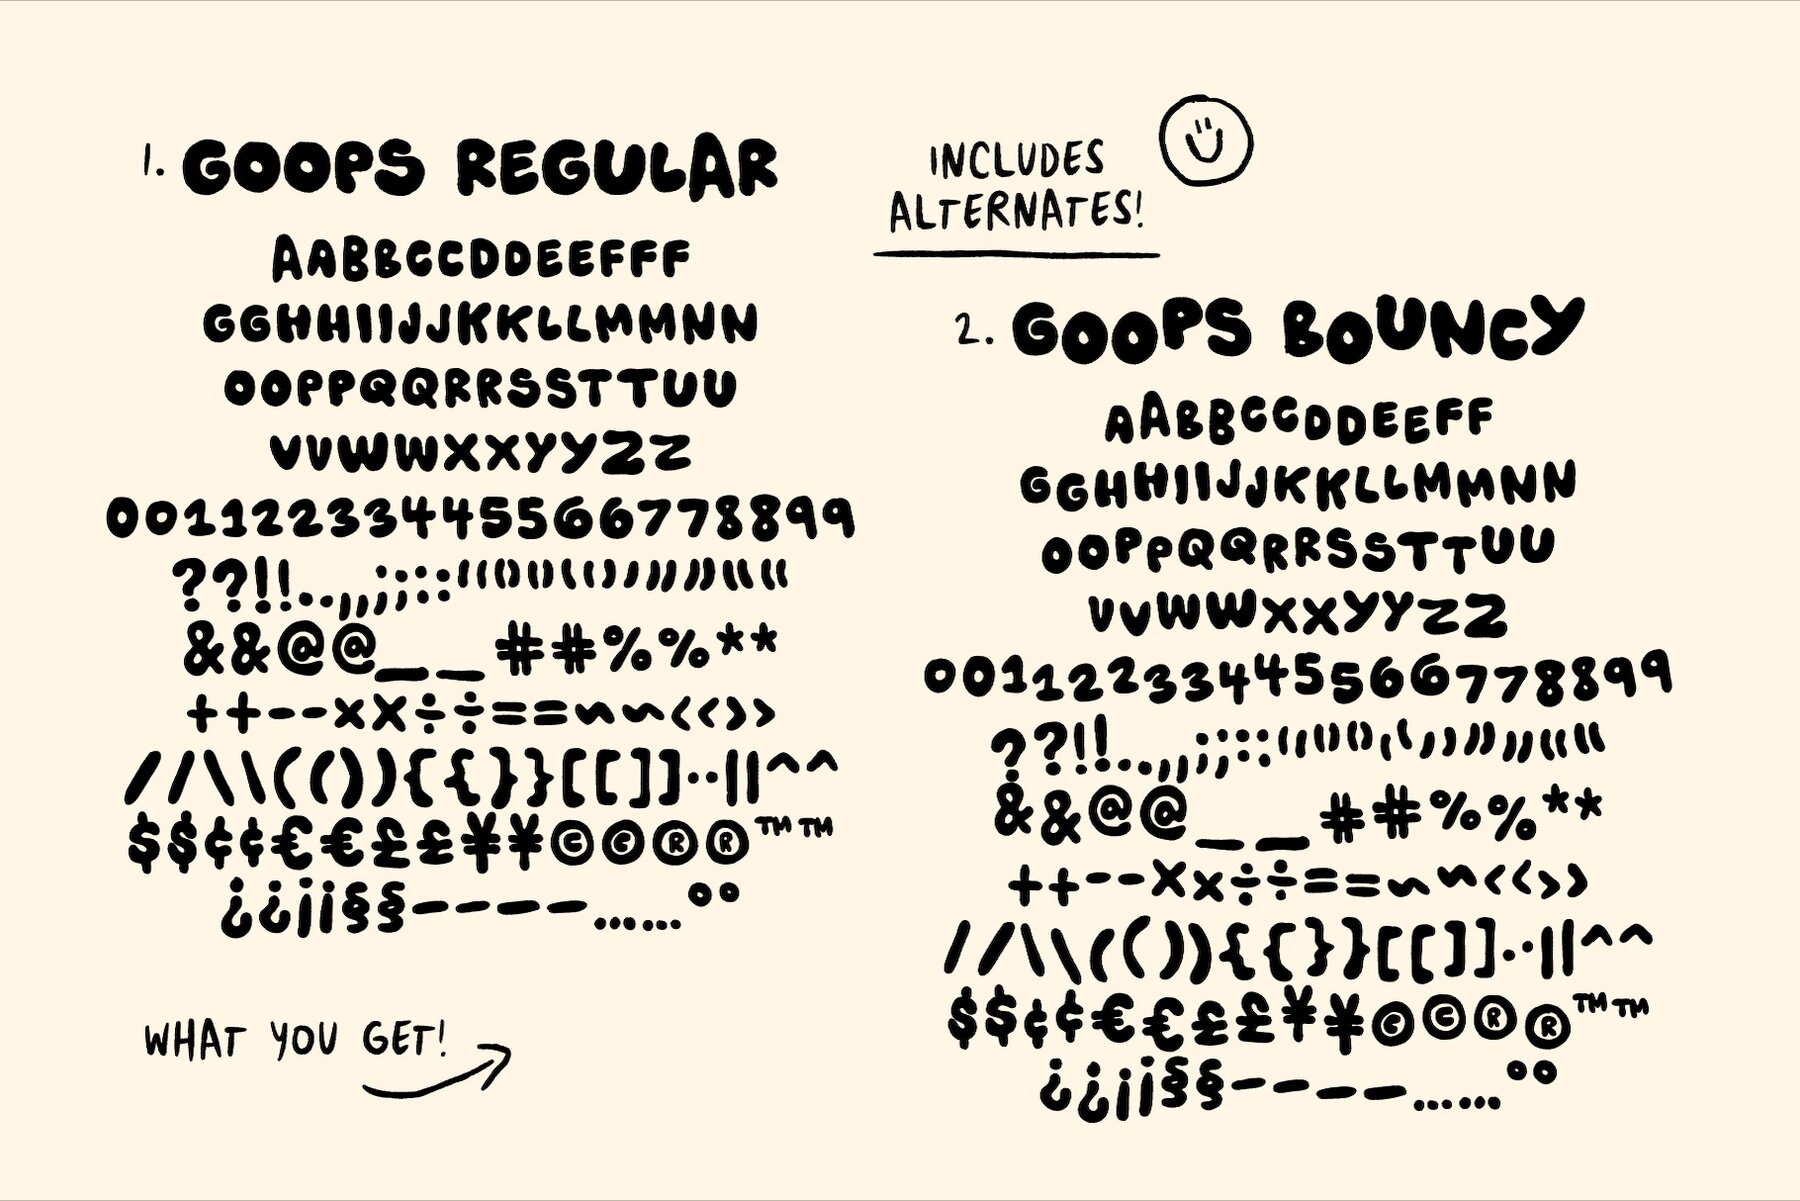 1. GOOPS REGULAR
AABBCCDDEEFFF
GGHHIIJJKKLLMMNN
OOPPQQRRSSTTUU
VVWWXXYYZZ
00112233445566778899
??!!..,,;;::''""‘‘’’””““
&&@@__##%%**
++--××÷÷==~~<<>>
//\\(()){{}}[[]]··||^^
$$¢¢€€££¥¥©©®®™™
¿¿¡¡§§––——……°°
WHAT YOU GET!
INCLUDES
ALTERNATES!
2. GOOPS BOUNCY
AABBCCDDEEFF
GGHHIIJJKKLLMMNN
OOPPQQRRSSTTUU
VVWWXXYYZZ
00112233445566778899
??!!..,,;;::''""‘‘’’””““
&&@@__##%%**
++--××÷÷==~~<<>>
//\\(()){{}}[[]]··||^^
$$¢¢€€££¥¥©©®®™™
¿¿¡¡§§––——……°°